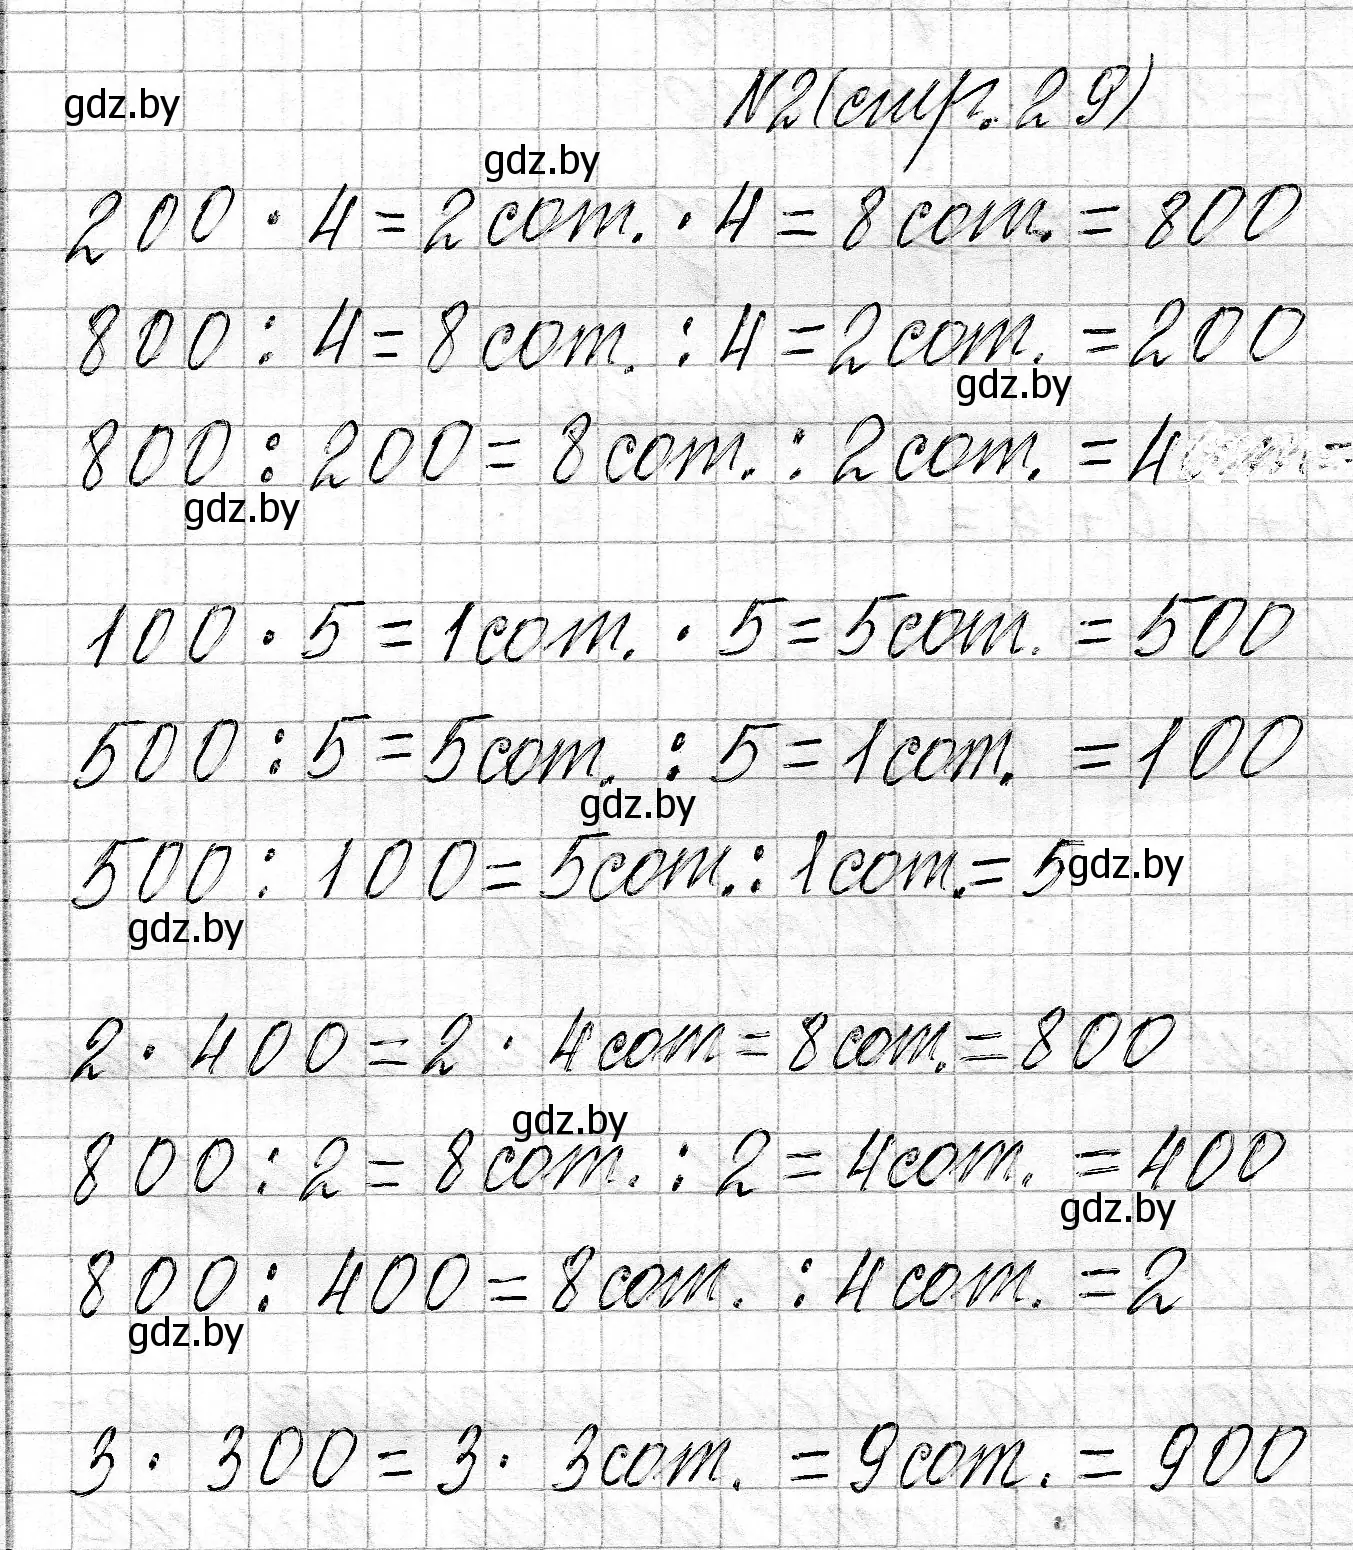 gdz.by
№2 (стр. 29)
gdz.by
200 · 4 = 2 сот. · 4 = 8 сот. = 800
800 : 4 = 8 сот. : 4 = 2 сот. = 200
gdz.by
800 : 200 = 8 сот. : 2 сот. = 4
gdz.by
100 · 5 = 1 сот. · 5 = 5 сот. = 500
500 : 5 = 5 сот. : 5 = 1 сот. = 100
gdz.by
500 : 100 = 5 сот. : 1 сот. = 5 gdz.by
gdz.by
2 · 400 = 2 · 4 сот = 8 сот. = 800
gdz.by
800 : 2 = 8 сот. : 2 = 4 сот. = 400
gdz.by
800 : 400 = 8 сот. : 4 сот. = 2
gdz.by
3 · 300 = 3 · 3 сот. = 9 сот. = 900